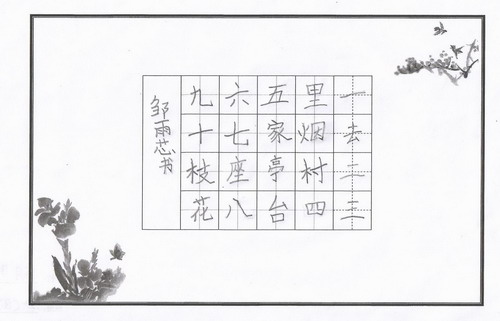 一去二三
里烟村四
五家亭台
六七座八
九十枝花
邹雨芯书